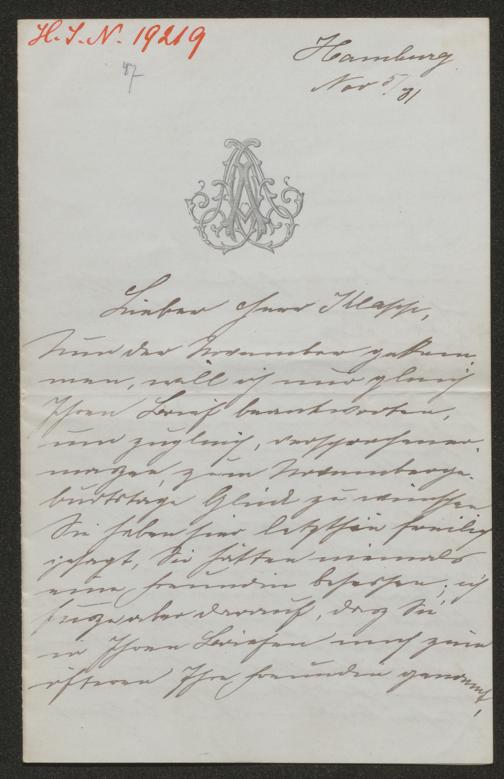 H. I. N. 19219
47
Hamburg
Nov 5/81
Lieber Herr Klapp,
Nun der November gekom-
men, will ich nur gleich
Ihren Brief beantworten,
um zugleich, versprochener-
maßen, zum Novemberge-
burtstage Glück zu wünschen.
Sie haben hier letzthin freilich
gesagt, Sie hätten niemals
eine Freundin besessen; ich
fuße aber darauf, daß Sie
in Ihren Briefen mich zum
öfteren Ihre Freundin genannt,